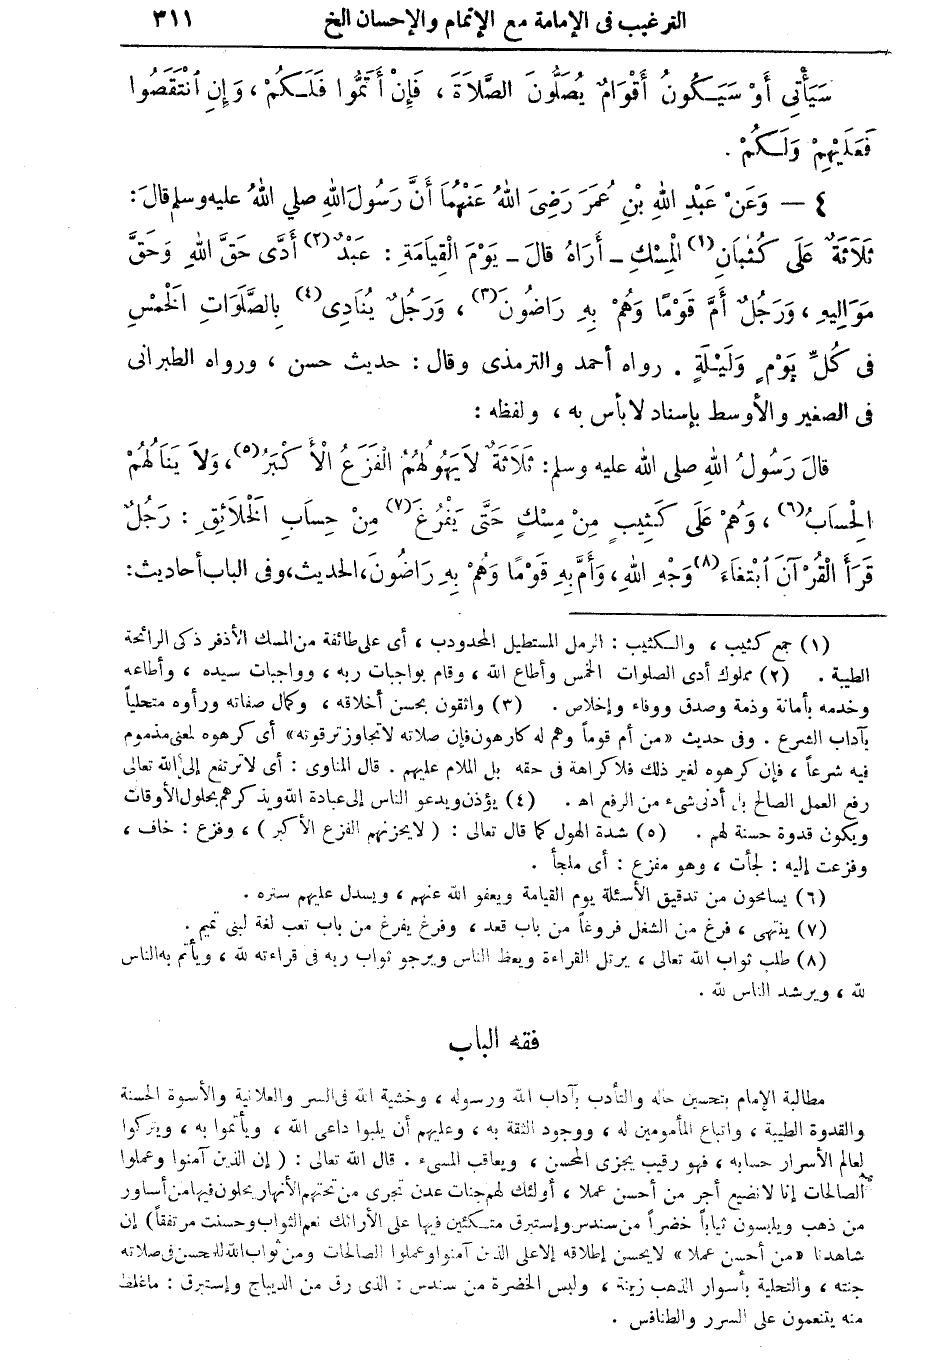 الترغيب فى الإمامة مع الإتمام والإحسان الخ ٣١١
سَيَأْتِى أَوْ سَيَكُونُ أَقْوَامٌ يُصَلُّونَ الصَّلاَةَ ، فَإِنْ أَتَمُّوا فَلَكُمْ ، وَإِنِ ٱنْتَقَصُوا
فَعَلَيْهِمْ وَلَكُمْ .
٤ — وَعَنْ عَبْدِ اللهِ بْنِ عُمَرَ رَضِىَ اللهُ عَنْهُمَا أَنَّ رَسُولَ اللهِ صلي اللهُ عليه وسلم قالَ :
ثَلاَثَةٌ عَلَى كُثْبَانِ (١) الْمِسْكِ ـ أُرَاهُ قالَ ـ يَوْمَ الْقِيَامَةِ : عَبْدٌ (٢) أَدَّى حَقَّ اللهِ وَحَقَّ
مَوَالِيهِ ، وَرَجُلٌ أَمَّ قَوْمًا وَهُمْ بِهِ رَاضُونَ (٣) ، وَرَجُلٌ يُنَادِى (٤) بِالصَّلَوَاتِ الْخَمْسِ
فى كُلِّ يَوْمٍ وَلَيْلَةٍ . رواه أحمد والترمذى وقال : حديث حسن ، ورواه الطبرانى
فى الصغير والأوسط بإسناد لا بأس به ، ولفظه :
قالَ رَسُولُ اللهِ صلى الله عليه وسلم : ثَلاَثَةٌ لاَ يَهُولُهُمُ الْفَزَعُ الْأَكْبَرُ (٥) ، وَلاَ يَنَالُهُمُ
الْحِسَابُ (٦) ، وَهُمْ عَلَى كَثِيبٍ مِنْ مِسْكٍ حَتَّى يَفْرُغَ (٧) مِنْ حِسَابِ الْخَلاَئِقِ : رَجُلٌ
قَرَأَ الْقُرْآنَ ٱبْتِغَاءَ (٨) وَجْهِ اللهِ ، وَأَمَّ بِهِ قَوْمًا وَهُمْ بِهِ رَاضُونَ ، الحديث ، وفى الباب أحاديث :
(١) جمع كثيب ، والكثيب : الرمل المستطيل المحدودب ، أى على طائفة من المسك الأذفر ذكى الرائحة
الطيبة . (٢) مملوك أدى الصلوات الخمس وأطاع الله ، وقام بواجبات ربه ، وواجبات سيده ، وأطاعه
وخدمه بأمانة وذمة وصدق ووفاء وإخلاص . (٣) واثقون بحسن أخلاقه ، وكمال صفاته ورأوه متحلياً
بآداب الشرع . وفى حديث «من أم قوماً وهم له كارهون فإن صلاته لا تجاوز ترقوته» أى كرهوه لمعنى مذموم
فيه شرعاً ، فإن كرهوه لغير ذلك فلا كراهة فى حقه بل الملام عليهم . قال المناوى : أى لا ترتفع إلى الله تعالى
رفع العمل الصالح بل أدنى شىء من الرفع اهـ . (٤) يؤذن ويدعو الناس إلى عبادة الله ويذكرهم بحلول الأوقات
ويكون قدوة حسنة لهم . (٥) شدة الهول كما قال تعالى : ( لا يحزنهم الفزع الأكبر ) ، وفزع : خاف ،
وفزعت إليه : لجأت ، وهو مفزع : أى ملجأ .
(٦) يسامحون من تدقيق الأسئلة يوم القيامة ويعفو الله عنهم ، ويسدل عليهم ستره .
(٧) ينتهى ، فرغ من الشغل فروغاً من باب قعد ، وفرغ يفرغ من باب تعب لغة لبنى تميم .
(٨) طلب ثواب الله تعالى ، يرتل القراءة ويعظ الناس ويرجو ثواب ربه فى قراءته لله ، ويأتم به الناس
لله ، ويرشد الناس لله .
فقه الباب
مطالبة الإمام بتحسين حاله والتأدب بآداب الله ورسوله ، وخشية الله فى السر والعلانية والأسوة الحسنة
والقدوة الطيبة ، واتباع المأمومين له ، ووجود الثقة به ، وعليهم أن يلبوا داعى الله ، ويأتموا به ، ويتركوا
لعالم الأسرار حسابه ، فهو رقيب يجزى المحسن ، ويعاقب المسىء . قال الله تعالى : ( إن الذين آمنوا وعملوا
الصالحات إنا لا نضيع أجر من أحسن عملا ، أولئك لهم جنات عدن تجرى من تحتهم الأنهار يحلون فيها من أساور
من ذهب ويلبسون ثياباً خضراً من سندس وإستبرق متكئين فيها على الأرائك نعم الثواب وحسنت مرتفقاً ) إن
شاهدنا «من أحسن عملا» لا يحسن إطلاقه إلا على الذين آمنوا وعملوا الصالحات ومن ثواب الله للمحسن فى صلاته
جنته ، والتحلية بأسوار الذهب زينة ، ولبس الخضرة من سندس : الذى رق من الديباج وإستبرق : ما غلظ
منه يتنعمون على السرر والطنافس .